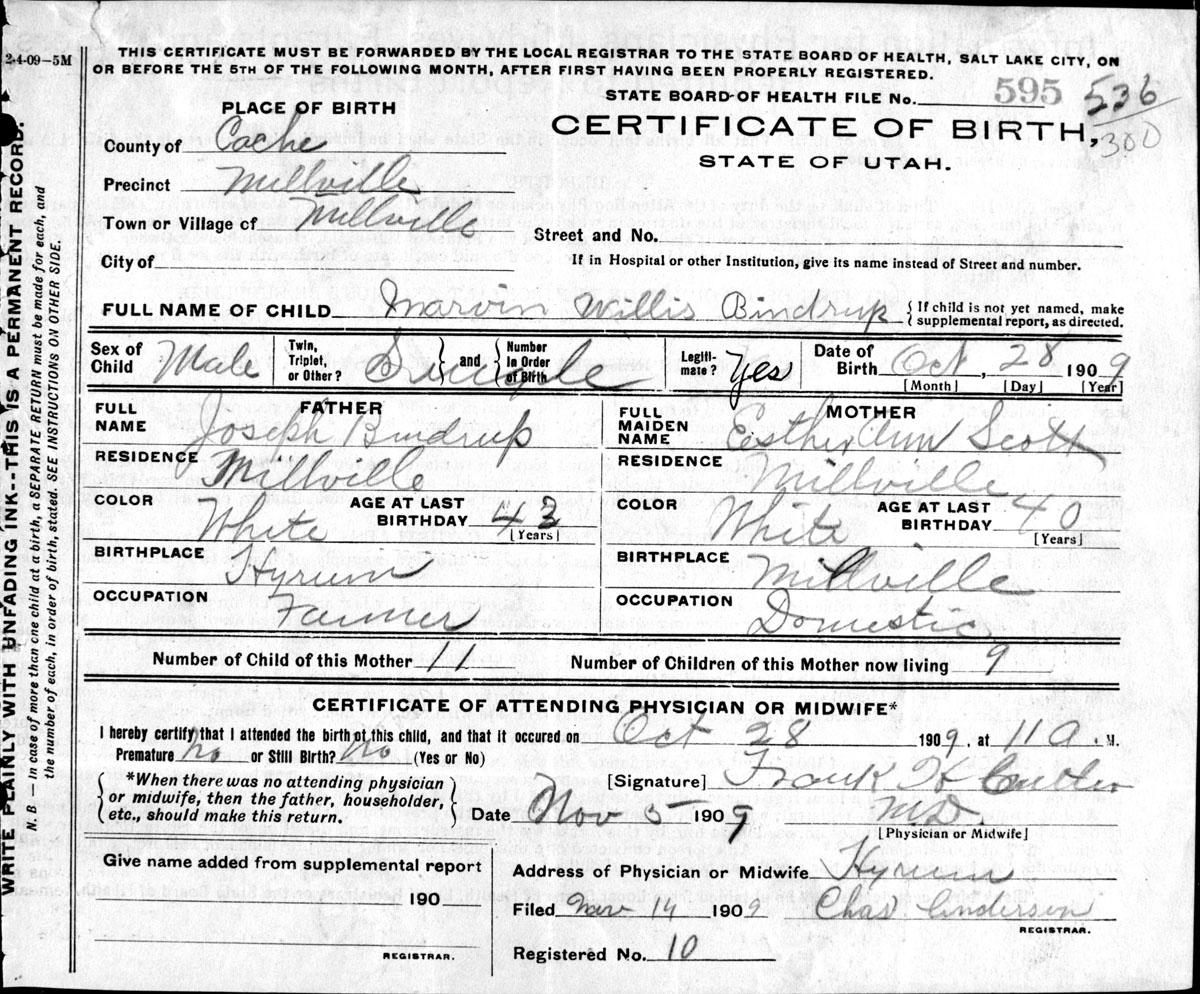 2-4-09-5M
THIS CERTIFICATE MUST BE FORWARDED BY THE LOCAL REGISTRAR TO THE STATE BOARD OF HEALTH, SALT LAKE CITY, ON
OR BEFORE THE 5TH OF THE FOLLOWING MONTH, AFTER FIRST HAVING BEEN PROPERLY REGISTERED.
STATE BOARD OF HEALTH FILE No. 595 536
300
CERTIFICATE OF BIRTH,
STATE OF UTAH.
PLACE OF BIRTH
County of Cache
Precinct Millville
Town or Village of Millville
City of
Street and No.
If in Hospital or other Institution, give its name instead of Street and number.
FULL NAME OF CHILD Marvin Willis Bindrup {If child is not yet named, make
supplemental report, as directed.
Sex of Child Male Twin, Triplet, or Other? Single } and { Number in Order of Birth Legiti-mate? Yes Date of Birth Oct, 28 1909
[Month] [Day] [Year]
FATHER
FULL NAME Joseph Bindrup
RESIDENCE Millville
COLOR White AGE AT LAST BIRTHDAY 43
[Years]
BIRTHPLACE Hyrum
OCCUPATION Farmer
MOTHER
FULL MAIDEN NAME Esther Ann Scott
RESIDENCE Millville
COLOR White AGE AT LAST BIRTHDAY 40
[Years]
BIRTHPLACE Millville
OCCUPATION Domestic
Number of Child of this Mother 11 Number of Children of this Mother now living 9
CERTIFICATE OF ATTENDING PHYSICIAN OR MIDWIFE*
I hereby certify that I attended the birth of this child, and that it occured on Oct 28 1909, at 11 a. M.
Premature no or Still Birth? no (Yes or No)
*When there was no attending physician
or midwife, then the father, householder,
etc., should make this return.
[Signature] Frank
M.D.
[Physician or Midwife]
Date Nov 5 1909
Give name added from supplemental report
190
REGISTRAR.
Address of Physician or Midwife Hyrum
Filed Nov 14 1909 Chas Anderson
REGISTRAR.
Registered No. 10
WRITE PLAINLY WITH UNFADING INK--THIS IS A PERMANENT RECORD.
N. B. — In case of more than one child at a birth, a SEPARATE RETURN must be made for each, and
the number of each, in order of birth, stated. SEE INSTRUCTIONS ON OTHER SIDE.